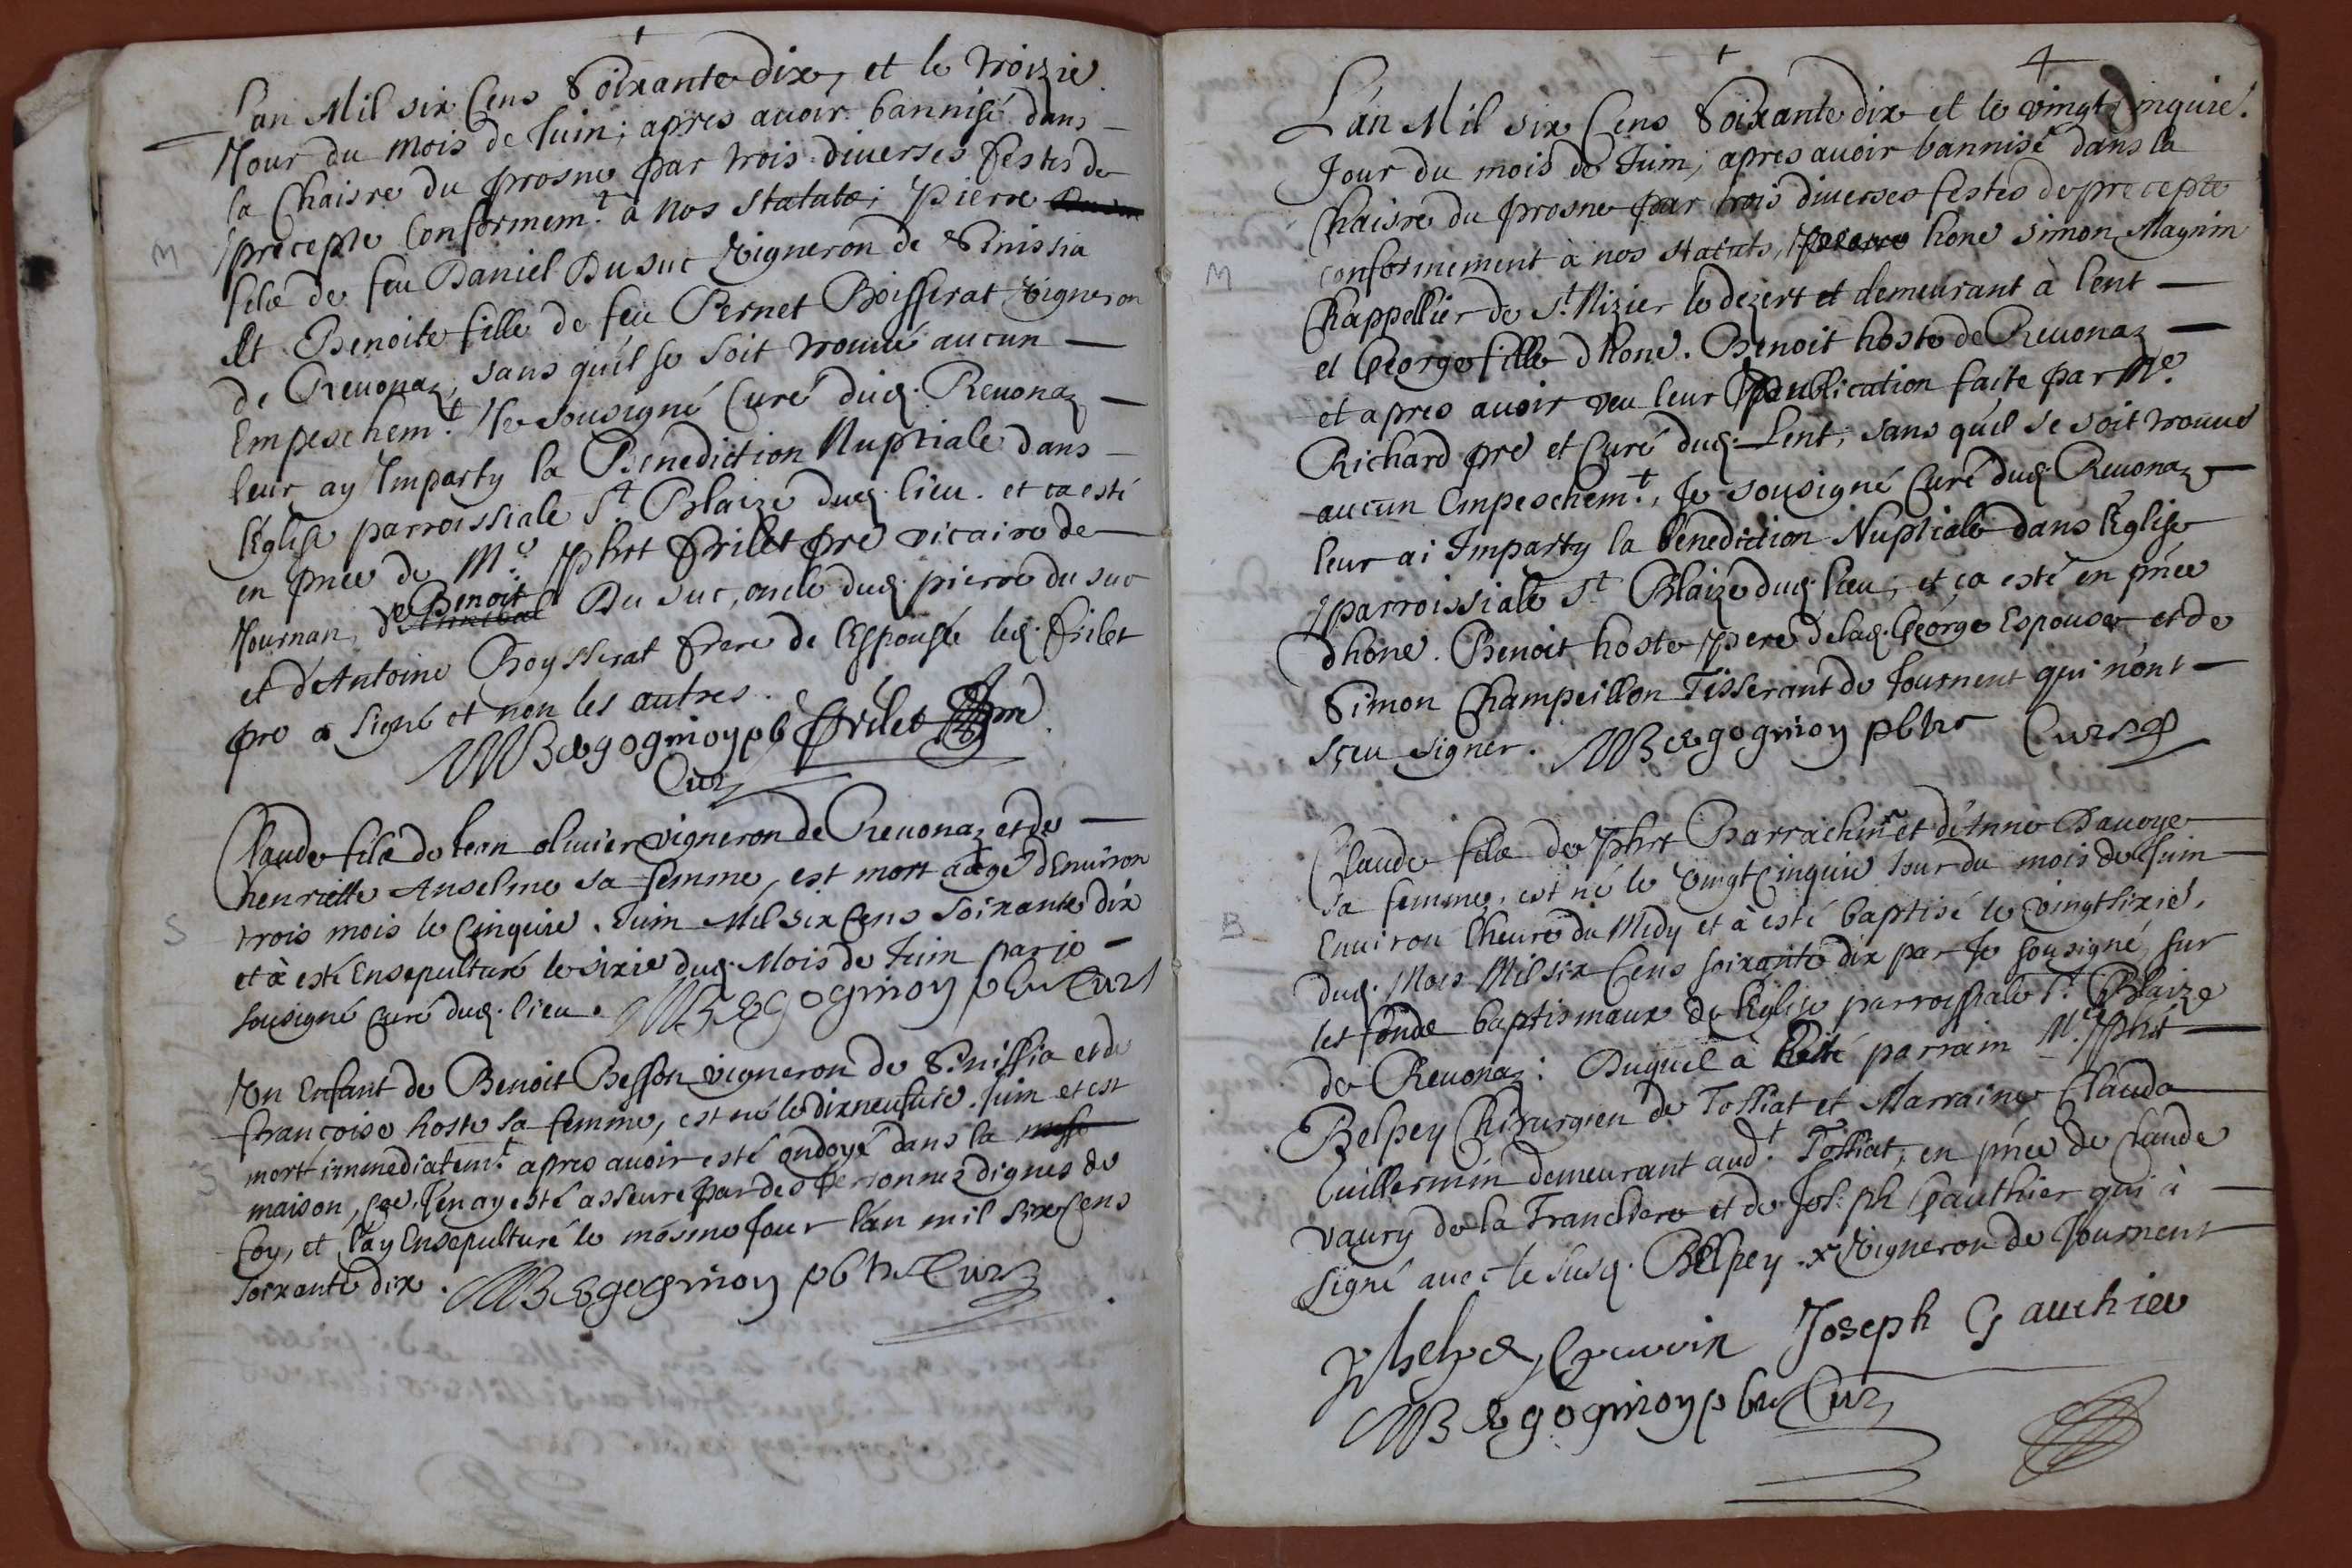 L'an Mil six Cens Soixante dix, et le troizie.
Jour du mois de Juin; apres auoir bannisé dans
la Chaisre du prosne par trois diuerses festes de
precepte Conformem.t à nos statuts; Pierre
M
fils de feu Daniel Dusuc Vigneron de Sinissia
Et Benoite fille de feu Pernet Boisserat vigneron
de Reuonaz, sans qu'il se soit trouué aucun
Empeschem.t Je sousigné Curé dud. Reuonaz
leur ay Imparty la Benediction Nuptiale dans
l'Eglise parroissiale S.t Blaize dud. lieu. et ca esté
en pnce de M.e Phrt frilet pre vicaire de
Journan, de Benoit Du suc, oncle dud. pierre du suc
et d'Antoine Boysserat frere de l'Espousée led. frilet
pre a signé et non les autres.
MBergogmoy pb frilet pre
Curé
Claude fils de Jean oliuier vigneron de Reuonaz et de
henriette Anselme sa femme, est mort aagé d'Enuiron
S
trois mois le Cinquie. Juin Mil six Cens Soixante dix
et à esté Ensepulturé le sixie dud. Mois de Juin par je
sousigné curé dud. lieu. MBergogmoy pbr Curé
Un Enfant de Benoit Besson vigneron de Sinissia et de
francoise hoste sa femme, est né le dixneufuie. Juin et est
S
mort immediatem.t apres auoir esté ondoyé dans la messe
maison, J'en ay esté asseuré par des Personnes dignes de
foy, et l'ay Ensepulturé le mesme Jour l'an mil six Cens
soixante dix. MBergogmoy pbtr Curé
4
L'an Mil six Cens Soixante dix et le vingt cinquie.
Jour du mois de Juin, apres auoir bannisé dans la
Chaisre du prosne par trois diuerses festes de precepte
M
conformement à nos statuts, hone simon Magnin
Chappellier de S.t Nizier le dezert et demeurant à lent
et George fille d'hone. Benoit hoste de Reuonaz
et apres auoir veu leur Publication faite par M.e
Richard pre et Curé dud. Lent; sans qu'il se soit trouué
aucun Empeschem.t, Je sousigné Curé dud. Reuonaz
leur ai Imparty la benediction Nuptiale dans l'Eglise
parroissiale S.t Blaize dud. lieu; et ça esté en pnce
d'hone. Benoit hoste pere de lad. George Espouse et de
Simon Champeillon Tisserant de Journent qui n'ont
sçeu signer. MBergogmoy pbtr Curé
Claude fils de Phrt Barrachin et d'Anne Dauoye
sa femme, est né le vingt Cinquie Jour du mois de Juin
B
Enuiron l'heure du Midy et à esté baptisé le vingt sixie.
dud. Mois Mil six Cens soixante dix par Je sousigné, sur
les fonds baptismaux de l'Eglise parroissiale S.t Blaize
de Reuonaz: Duquel à Esté parrain M. Phrt
Belpey Chirurgien de Tossiat et Marraine Claude
Guillermin demeurant aud.t Tossiat, en pnce de Claude
vaury de la Tranchere et de Joseph Gauthier qui à
signé auec le susd. Belpey x Vigneron de Journent
Joseph Gauthier
MBergogmoy pbr Curé